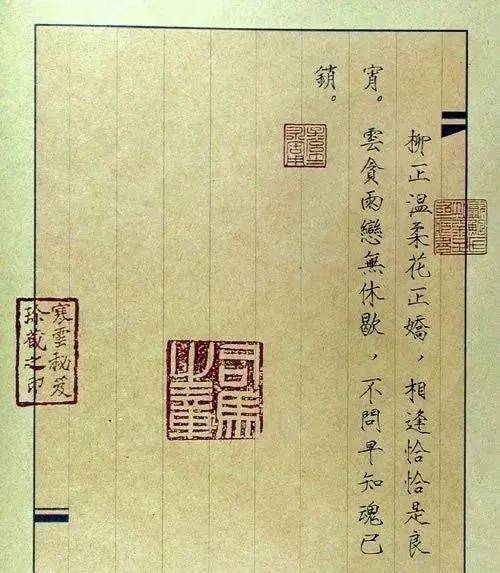 柳正温柔花正嬌，相逢恰恰是良
宵。雲貪雨戀無休歇，不問早知魂已
銷。
司馬之章
寒雲秘笈
珍藏之印